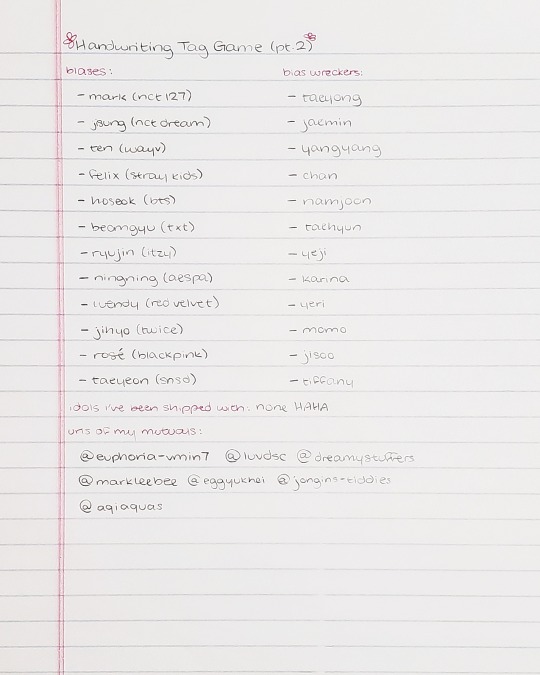 Handwriting Tag Game (pt.2)
biases: bias wreckers:
- mark (nct 127) - taeyong
- jsung (nct dream) - jaemin
- ten (wayv) - yangyang
- felix (stray kids) - chan
- hoseok (bts) - namjoon
- beomgyu (txt) - taehyun
- ryujin (itzy) - yeji
- ningning (aespa) - karina
- wendy (red velvet) - yeri
- jihyo (twice) - momo
- rosé (blackpink) - jisoo
- taeyeon (snsd) - tiffany
idols i've been shipped with: none HAHA
urls of my mutuals:
@euphoria-vmin7 @luvdsc @dreamystuffers
@markleebee @eggyukhei @jongins-tiddies
@aqiaquas